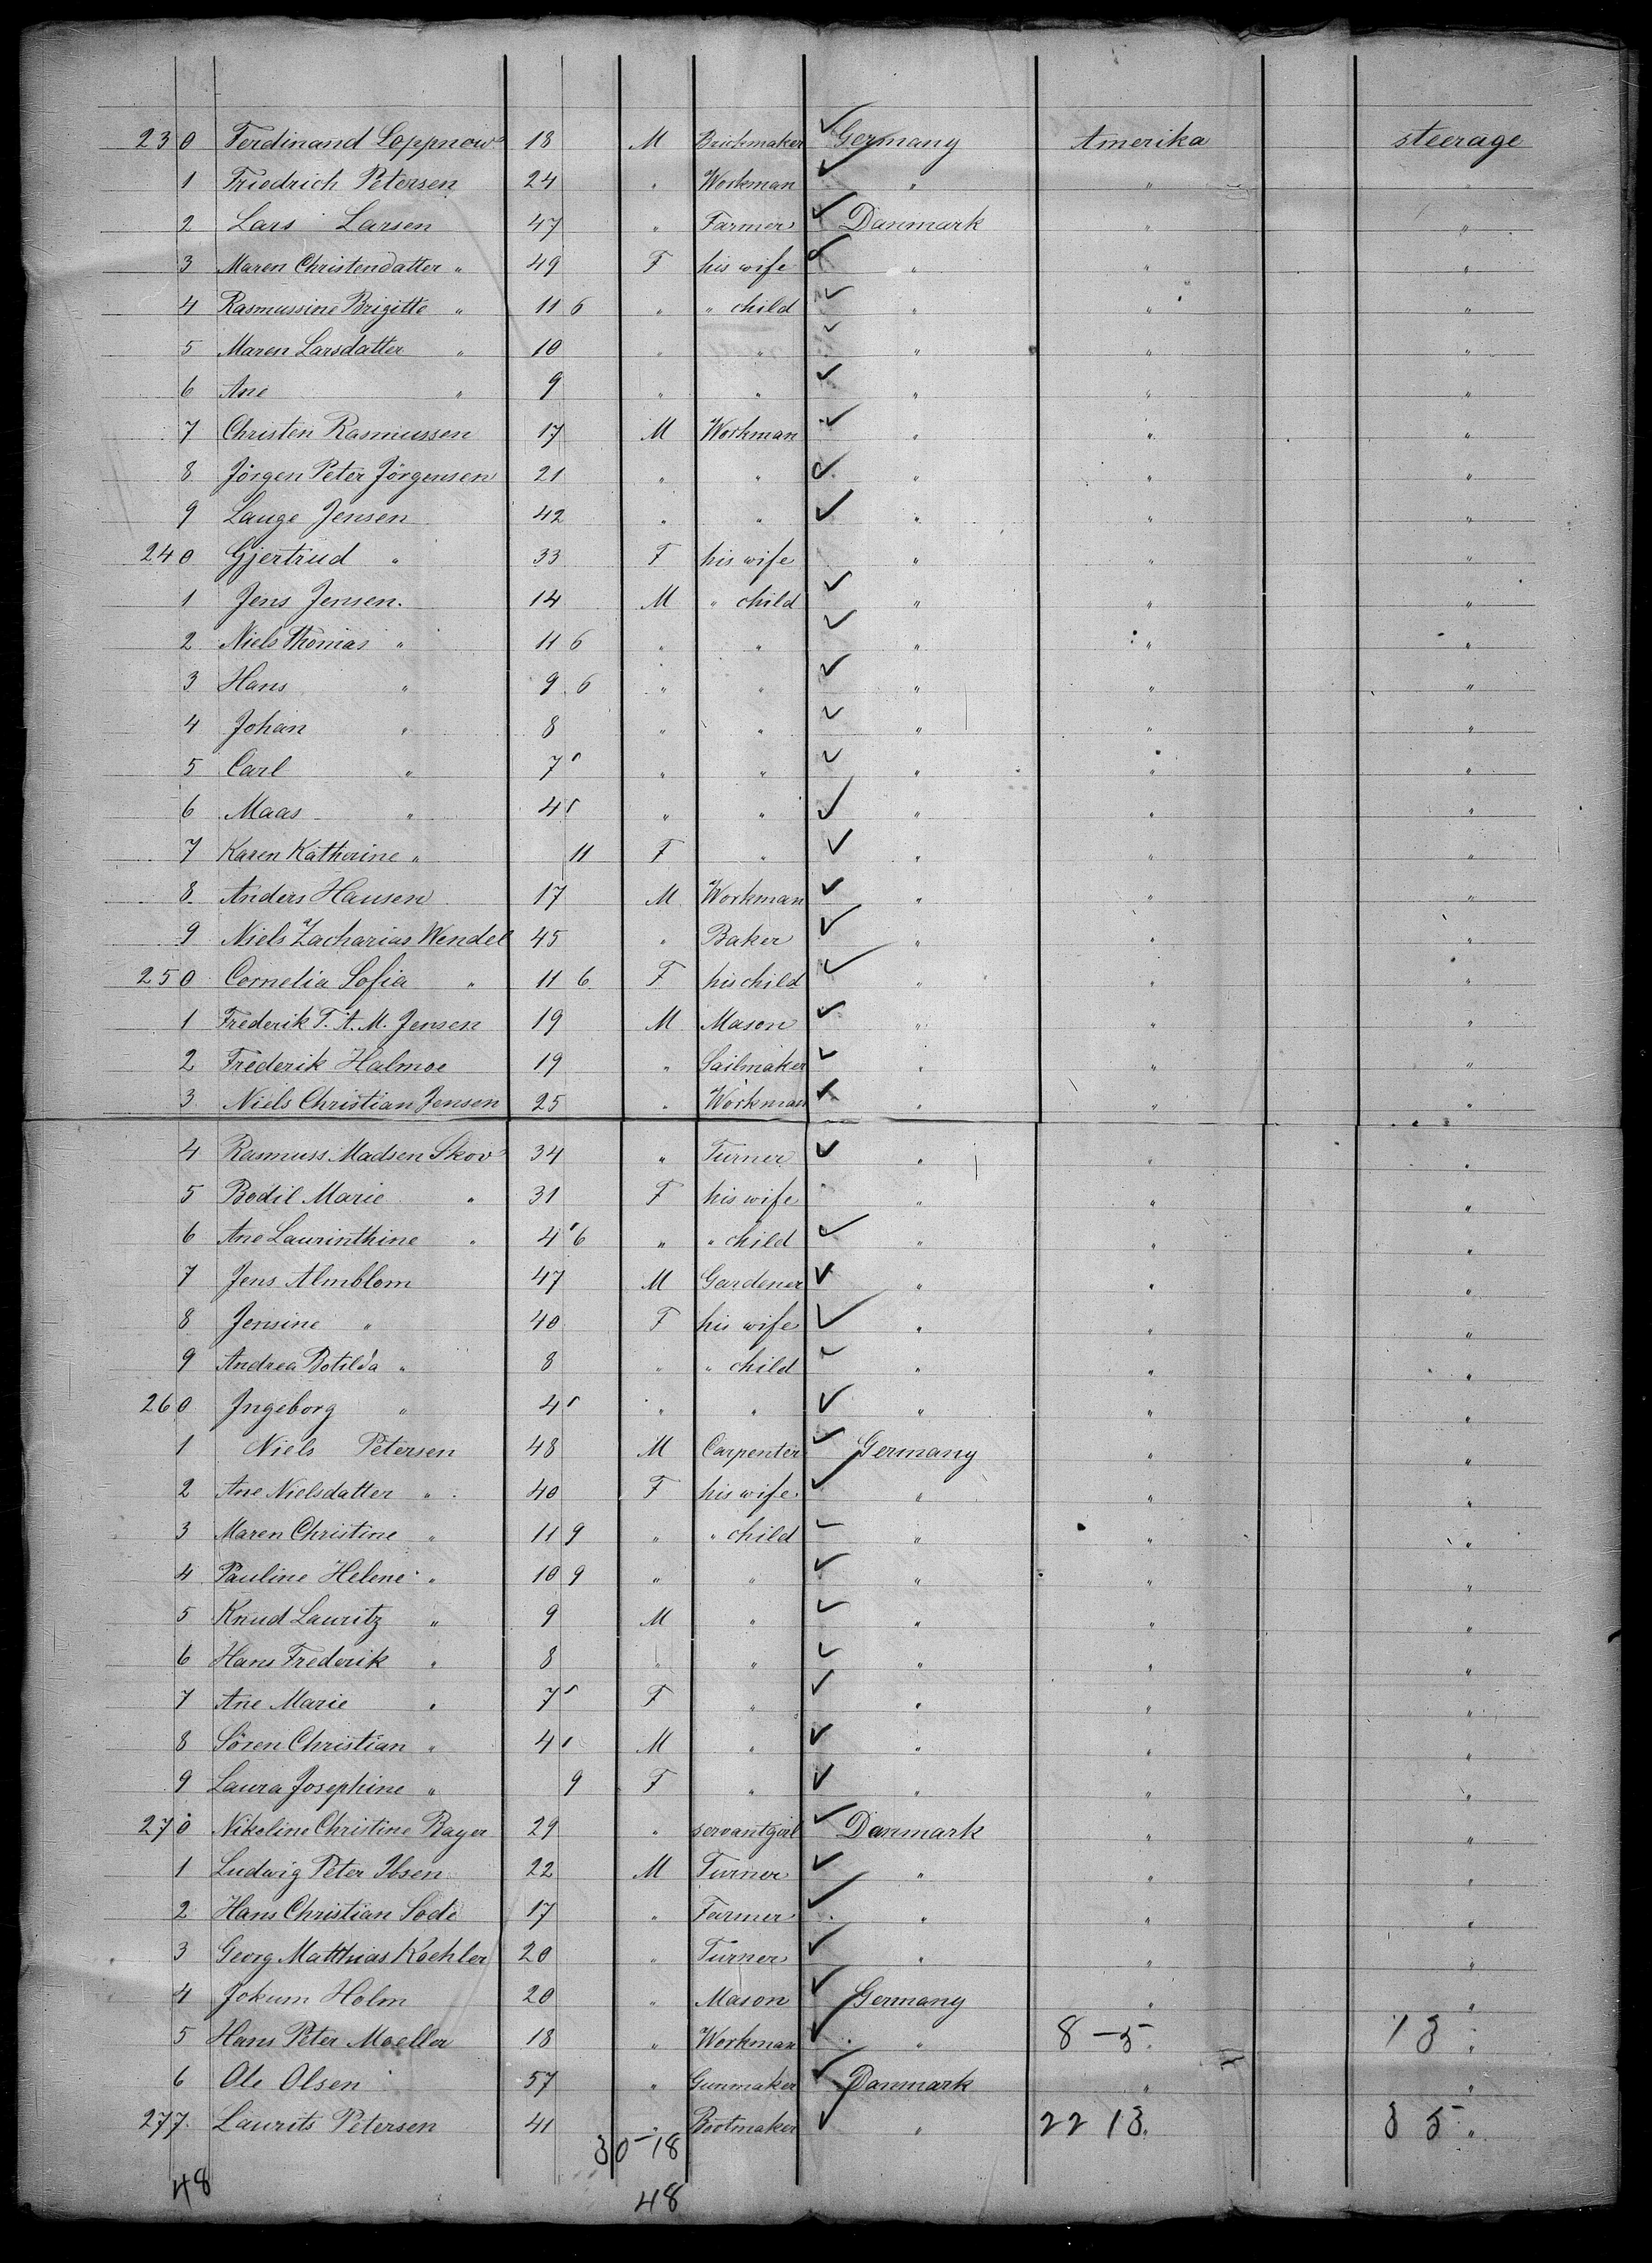 230 Ferdinand Loppnow 18 M Brickmaker Germany Amerika steerage
1 Friedrich Petersen 24 " Workman " " "
2 Lars Larsen 47 " Farmer Danmark " "
3 Maren Christendatter " 49 F his wife " " "
4 Rasmussine Brigitte " 11 6 " " child " " "
5 Maren Larsdatter " 10 " " " " "
6 Ane " 9 " " " " "
7 Christen Rasmussen 17 M Workman " " "
8 Jörgen Peter Jörgensen 21 " " " " "
9 Lauge Jensen 42 " " " " "
240 Gjertrud " 33 F his wife " " "
1 Jens Jensen. 14 M " child " " "
2 Niels Thomas " 11 6 " " " " "
3 Hans " 9 6 " " " " "
4 Johan " 8 " " " " "
5 Carl " 7 " " " " "
6 Maas " 4 " " " " "
7 Karen Katherine " 11 F " " " "
8 Anders Hansen 17 M Workman " " "
9 Niels Zacharias Wendel 45 " Baker " " "
250 Cornelia Sofia " 11 6 F his child " " "
1 Frederik T. A. M. Jensen 19 M Mason " " "
2 Frederik Halmoe 19 " Sailmaker " " "
3 Niels Christian Jensen 25 " Workman " " "
4 Rasmuss Madsen Skov 34 " Turner " " "
5 Bodil Marie " 31 F his wife " " "
6 Ane Laurinthine " 4 6 " " child " " "
7 Jens Almblom 47 M Gardener " " "
8 Jensine " 40 F his wife " " "
9 Andrea Botilda " 8 " " child " " "
260 Ingeborg " 4 " " " " "
1 Niels Petersen 48 M Carpenter Germany " "
2 Ane Nielsdatter " 40 F his wife " " "
3 Maren Christine " 11 9 " " child " " "
4 Pauline Helene " 10 9 " " " " "
5 Knud Lauritz " 9 M " " " "
6 Hans Frederik " 8 " " " " "
7 Ane Marie " 7 F " " " "
8 Sören Christian " 4 M " " " "
9 Laura Josephine " 9 F " " " "
270 Nikoline Christine Bayer 29 " servantgirl Danmark " "
1 Ludwig Peter Ibsen 22 M Turner " " "
2 Hans Christian Sode 17 " Farmer " " "
3 Georg Matthias Koehler 20 " Turner " " "
4 Jokum Holm 20 " Mason Germany " "
5 Hans Peter Moeller 18 " Workman " 8-5 " 13 "
6 Ole Olsen 57 " Gunmaker Danmark " "
277 Laurits Petersen 41 " Bootmaker " 22 13 " 35 "
30-18
48 48